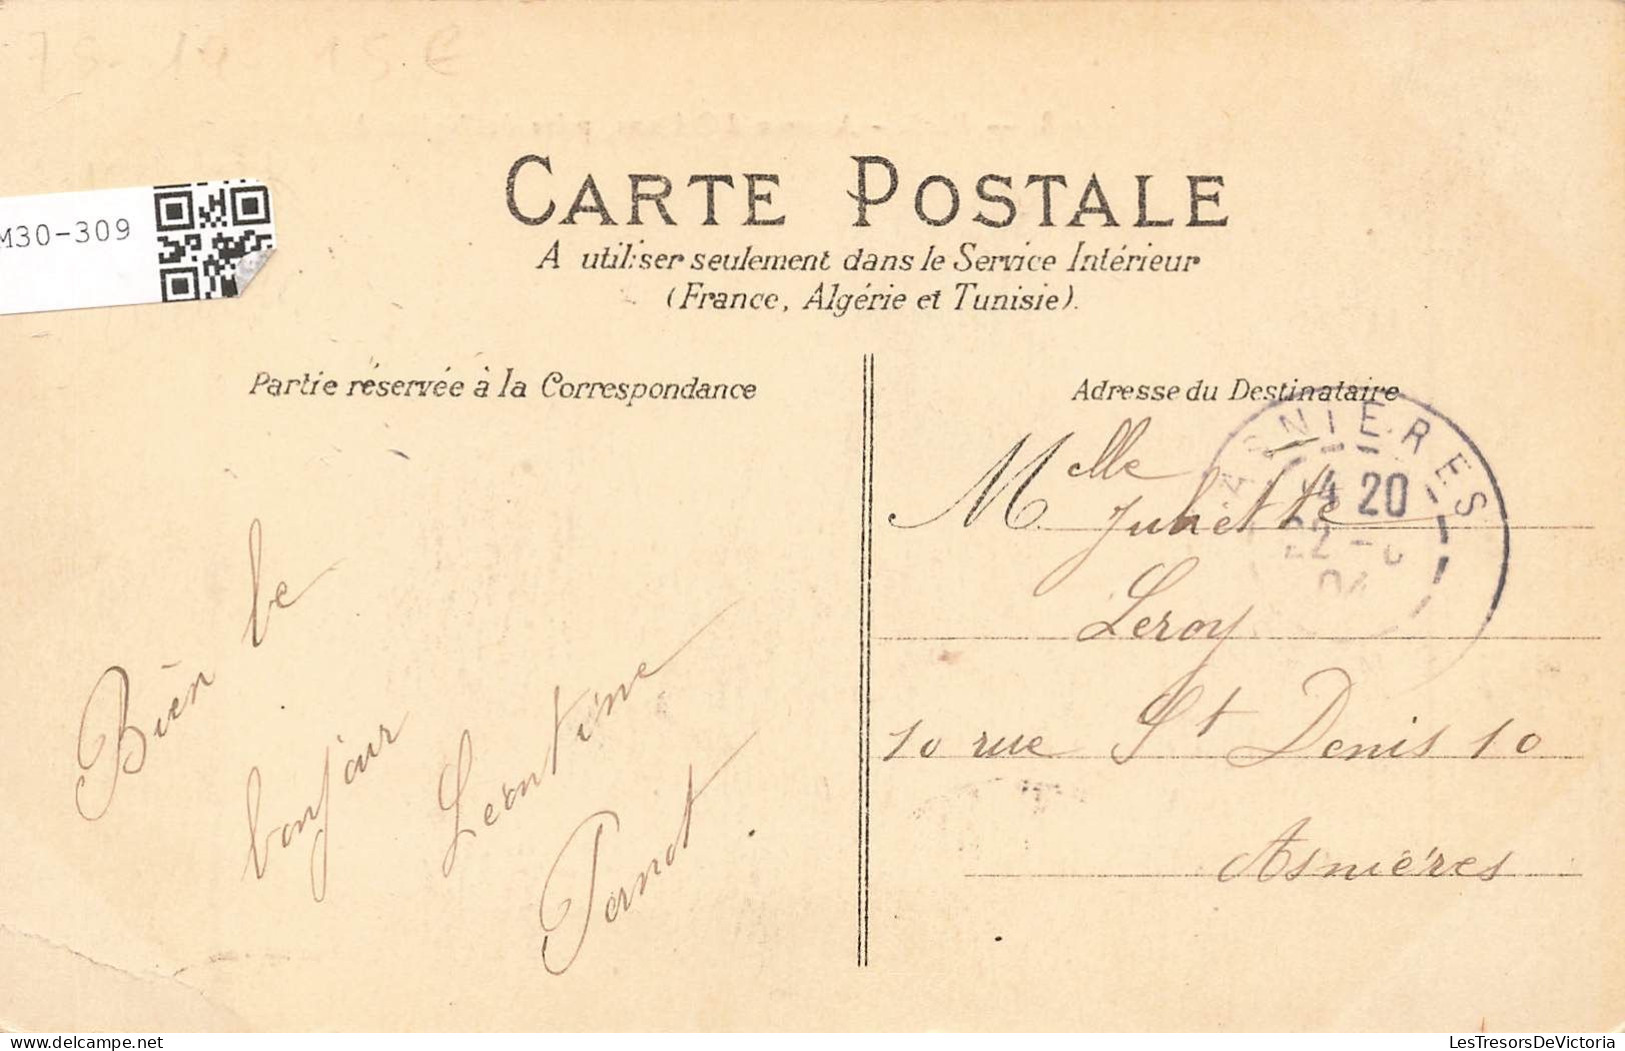 75. 14 15 €
M30-309
CARTE POSTALE
A utiliser seulement dans le Service Intérieur
(France, Algérie et Tunisie).
Partie réservée à la Correspondance
Bien le
bonjour
Leontine
Pernot
Adresse du Destinataire
ASNIÈRES
4 20
22 - 6
04
Melle
Juliette
Leroy
10 rue St Denis 10
Asnières
Delcampe.net
LesTresorsDeVictoria